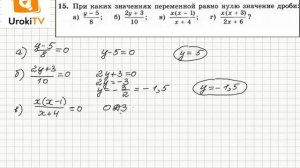 UrokiTV
15. При каких значениях переменной равно нулю значение дроби:
а) y − 5 / 8; б) 2y + 3 / 10; в) x(x − 1) / x + 4; г) x(x + 3) / 2x + 6?
а) y-5 / 8 = 0 y-5=0 y=5
б) 2y+3 / 10 = 0 2y+3=0
2y=-3
y=-3/2=-1,5 y=-1,5
в) x(x-1) / x+4 = 0